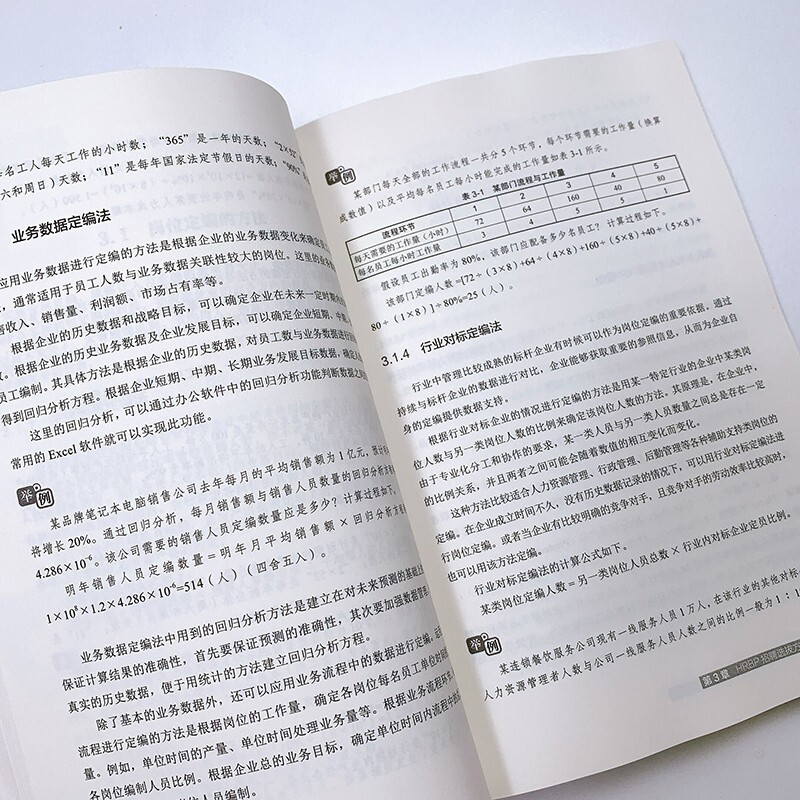 名工人每天工作的小时数；“365”是一年的天数；“2×52”
六和周日）天数；“11”是每年国家法定节假日的天数；“90%”
业务数据定编法
应用业务数据进行定编的方法是根据企业的业务数据变化来确定
，通常适用于员工人数与业务数据关联性较大的岗位。这里的业务
售收入、销售量、利润额、市场占有率等。
根据企业的历史数据和战略目标，可以确定企业在未来一定时期
。根据企业的历史业务数据及企业发展目标，可以确定企业短期、中
员工编制。其具体方法是根据企业的历史数据，对员工数与业务数据进行
得到回归分析方程。根据企业短期、中期、长期业务发展目标数据，确定
这里的回归分析，可以通过办公软件中的回归分析功能判断数据之间
常用的 Excel 软件就可以实现此功能。
举例
某品牌笔记本电脑销售公司去年每月的平均销售额为 1 亿元，预计
将增长 20%。通过回归分析，每月销售额与销售人员数量的回归分析
4.286×10⁻⁶。该公司需要的销售人员定编数量应是多少？计算过程如下。
明年销售人员定编数量 = 明年月平均销售额 × 回归分析
1×10⁸×1.2×4.286×10⁻⁶=514（人）（四舍五入）。
业务数据定编法中用到的回归分析方法是建立在对未来预测的基础上
保证计算结果的准确性，首先要保证预测的准确性，其次要加强数据管
真实的历史数据，便于用统计的方法建立回归分析方程。
除了基本的业务数据外，还可以应用业务流程中的数据进行定编，
流程进行定编的方法是根据岗位的工作量，确定各岗位每名员工单位时间
量。例如，单位时间的产量、单位时间处理业务量等。根据业务流程
各岗位编制人员比例。根据企业总的业务目标，确定单位时间内流程中
人员编制。
举例
某部门每天全部的工作流程一共分 5 个环节，每个环节需要的工作量（换算
成数值）以及平均每名员工每小时能完成的工作量如表 3-1 所示。
表 3-1 某部门流程与工作量
流程环节 1 2 3 4 5
每天需要的工作量（小时） 72 64 160 40 80
每名员工每小时工作量 3 4 5 5 1
假设员工出勤率为 80%，该部门应配备多少名员工？计算过程如下。
该部门定编人数 =[72÷（3×8）+64÷（4×8）+160÷（5×8）+40÷（5×8）+
80÷（1×8）]÷80%=25（人）。
3.1.4 行业对标定编法
行业中管理比较成熟的标杆企业有时候可以作为岗位定编的重要依据。通过
持续与标杆企业的数据进行对比，企业能够获取重要的参照信息，从而为企业自
身的定编提供数据支持。
根据行业对标企业的情况进行定编的方法是用某一特定行业的企业中某类岗
位人数与另一类岗位人数的比例来确定该岗位人数的方法。其原理是，在企业中，
由于专业化分工和协作的要求，某一类人员与另一类人员数量之间总是存在一定
的比例关系，并且两者之间可能会随着数值的相互变化而变化。
这种方法比较适合人力资源管理、行政管理、后勤管理等各种辅助支持类岗位的
定编。在企业成立时间不久，没有历史数据记录的情况下，可以用行业对标定编法进
行岗位定编。或者当企业有比较明确的竞争对手，且竞争对手的劳动效率比较高时，
也可以用该方法定编。
行业对标定编法的计算公式如下。
某类岗位定编人数 = 另一类岗位人员总数 × 行业内对标企业定员比例。
举例
某连锁餐饮服务公司现有一线服务人员 1 万人，在该行业的其他对标
人力资源管理者人数与公司一线服务人员人数之间的比例一般为 1：1
第 3 章 HRBP 招聘选拔